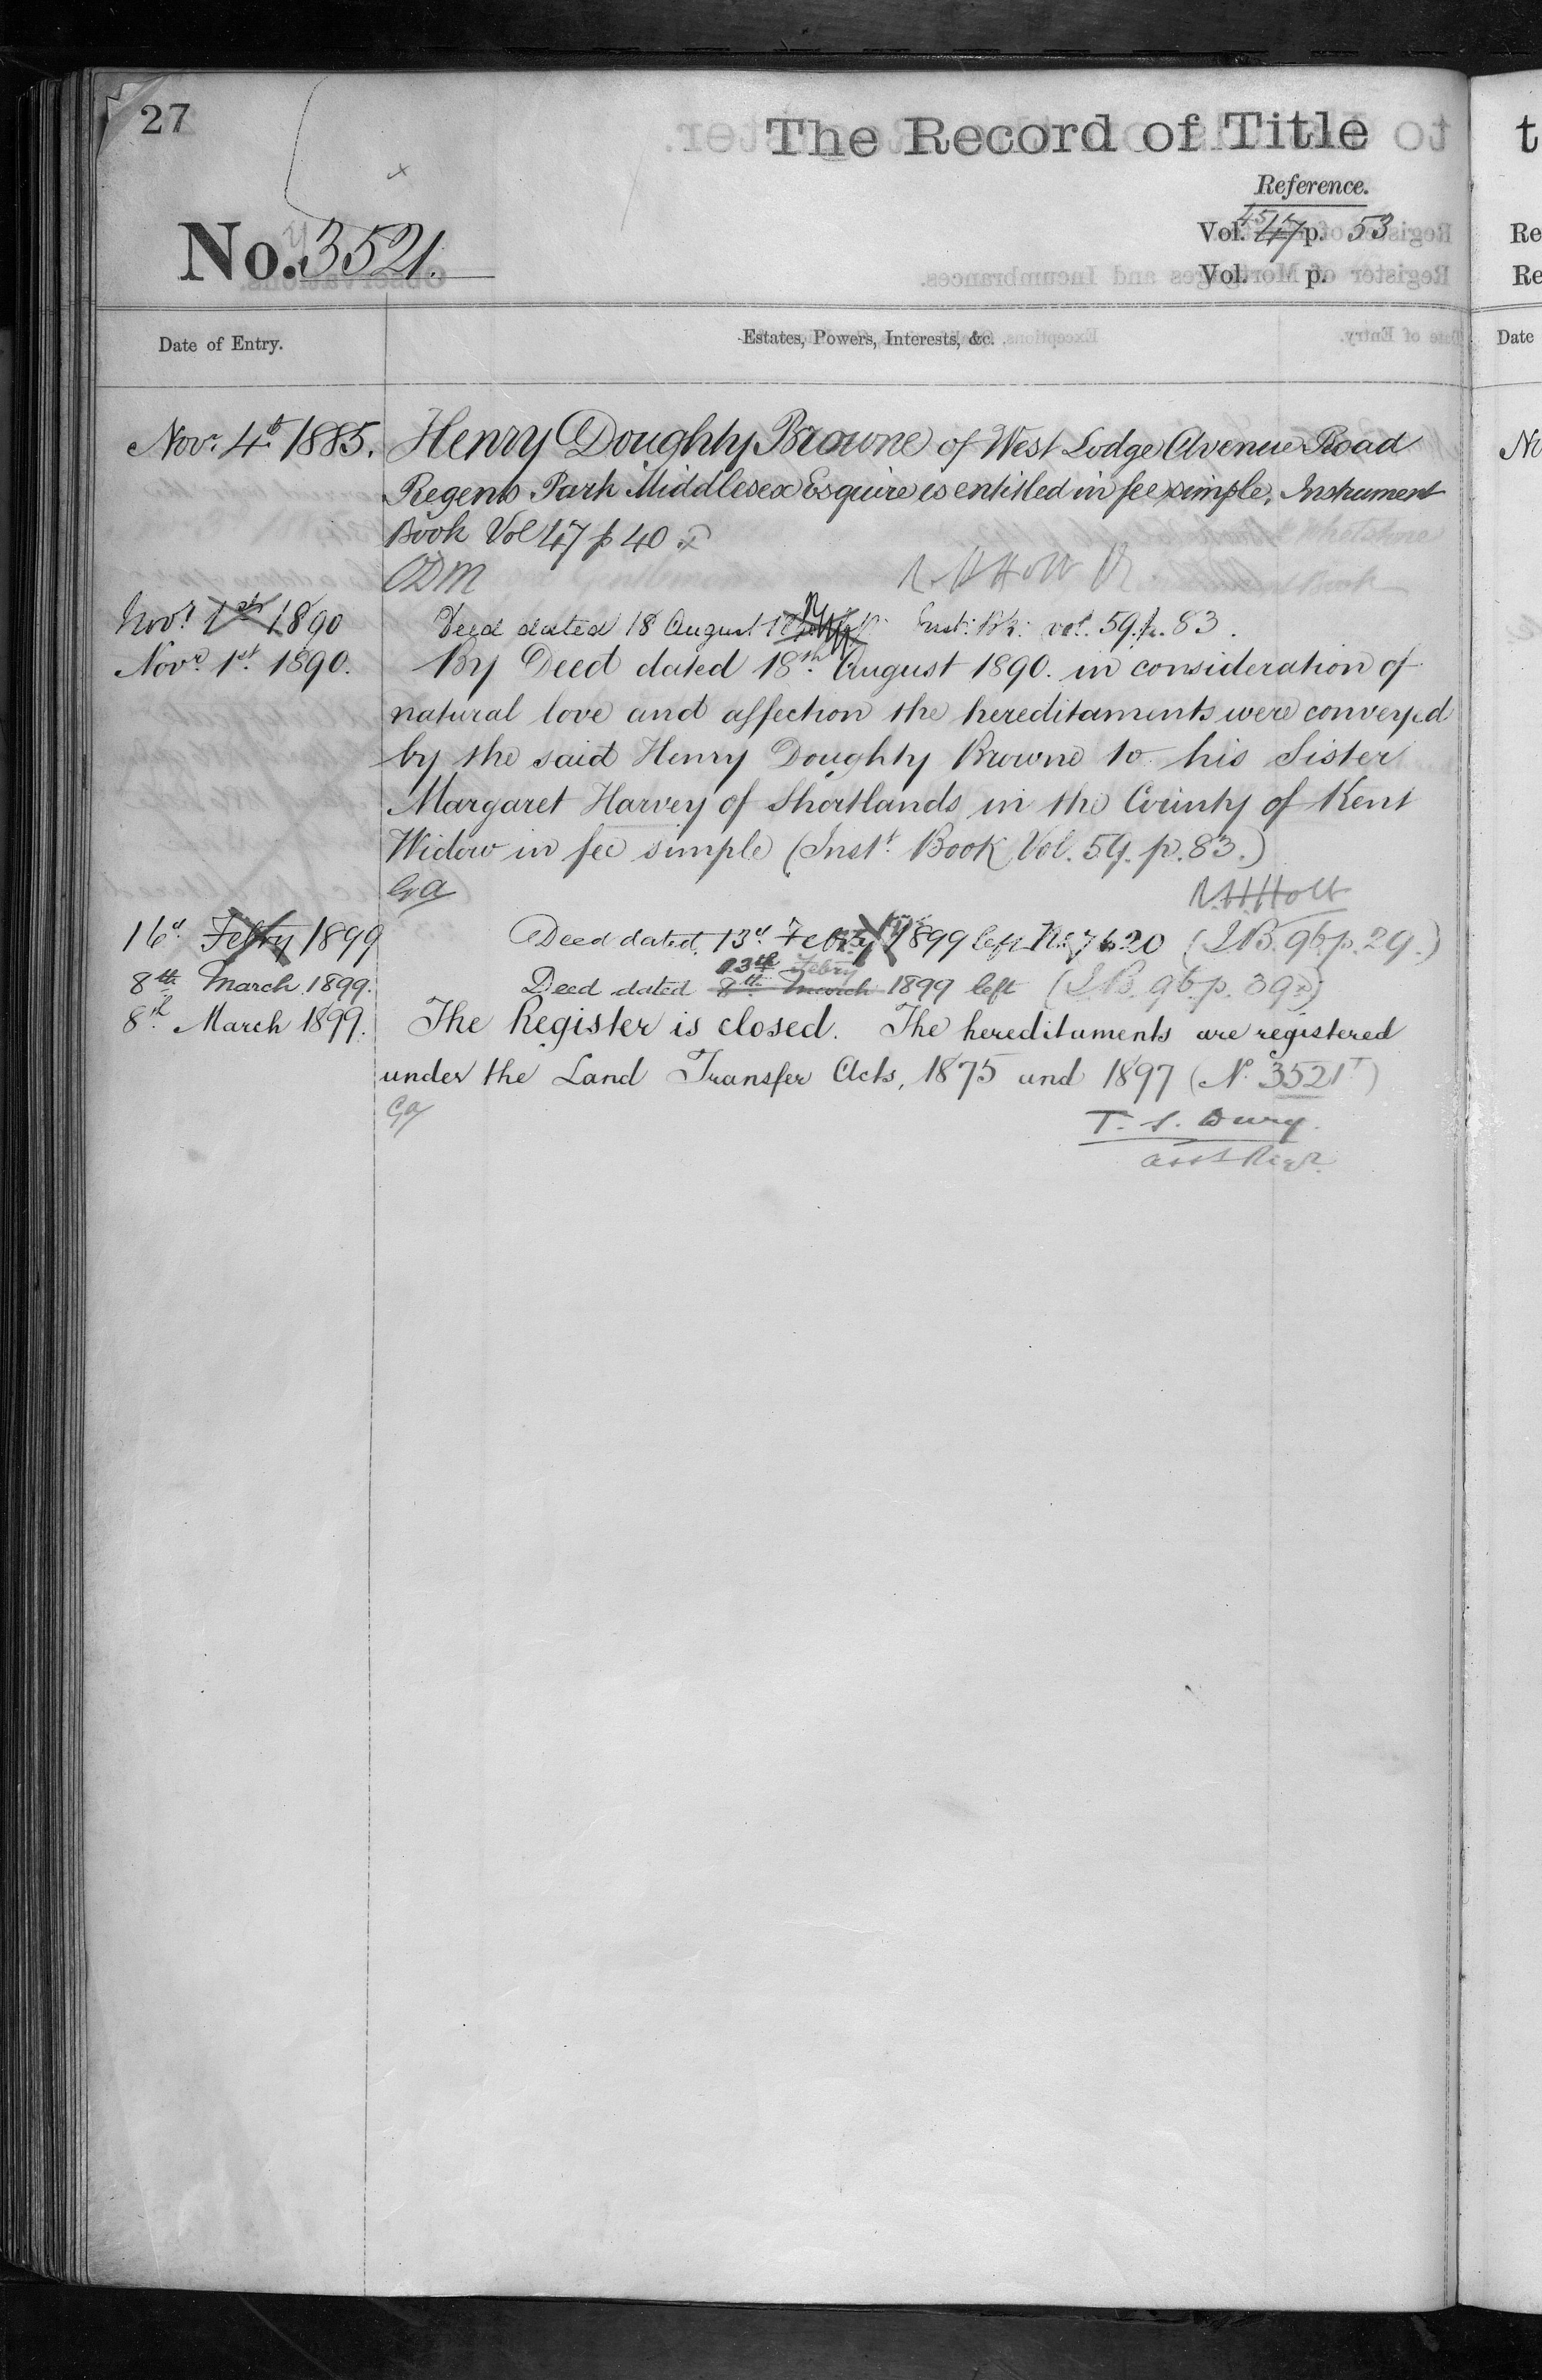 27
The Record of Title
Reference.
Vol. 45 47 p. 53
No. 3521.
Vol. p.
Date of Entry. Estates, Powers, Interests, &c.
Novr. 4th 1885. Henry Doughty Browne of West Lodge Avenue Road
Regents Park Middlesex Esquire is entitled in fee simple. Instrument
Book Vol 47 p 40
ODM R. H Holt
Novr. 1st 1890 Deed dated 18 August Inst: Bk: vol. 59. p. 83.
Novr. 1st. 1890. By Deed dated 18th. August 1890. in consideration of
natural love and affection the hereditaments were conveyed
by the said Henry Doughty Browne to his Sister
Margaret Harvey of Shortlands in the County of Kent
Widow in fee simple (Inst. Book Vol. 59. p. 83.)
GA R.H.Holt
16th Febry 1899 Deed dated 13th Febry 1899 left No. 7620 (I.B. 96. p. 29.)
13th Febry
8th March 1899. Deed dated 8th March 1899 left (I.B. 96. p. 39)
8th March 1899. The Register is closed. The hereditaments are registered
under the Land Transfer Acts, 1875 and 1897 (No. 3521T)
GA T. S. Dury.
Asst Regr.
t
Re
Re
Date